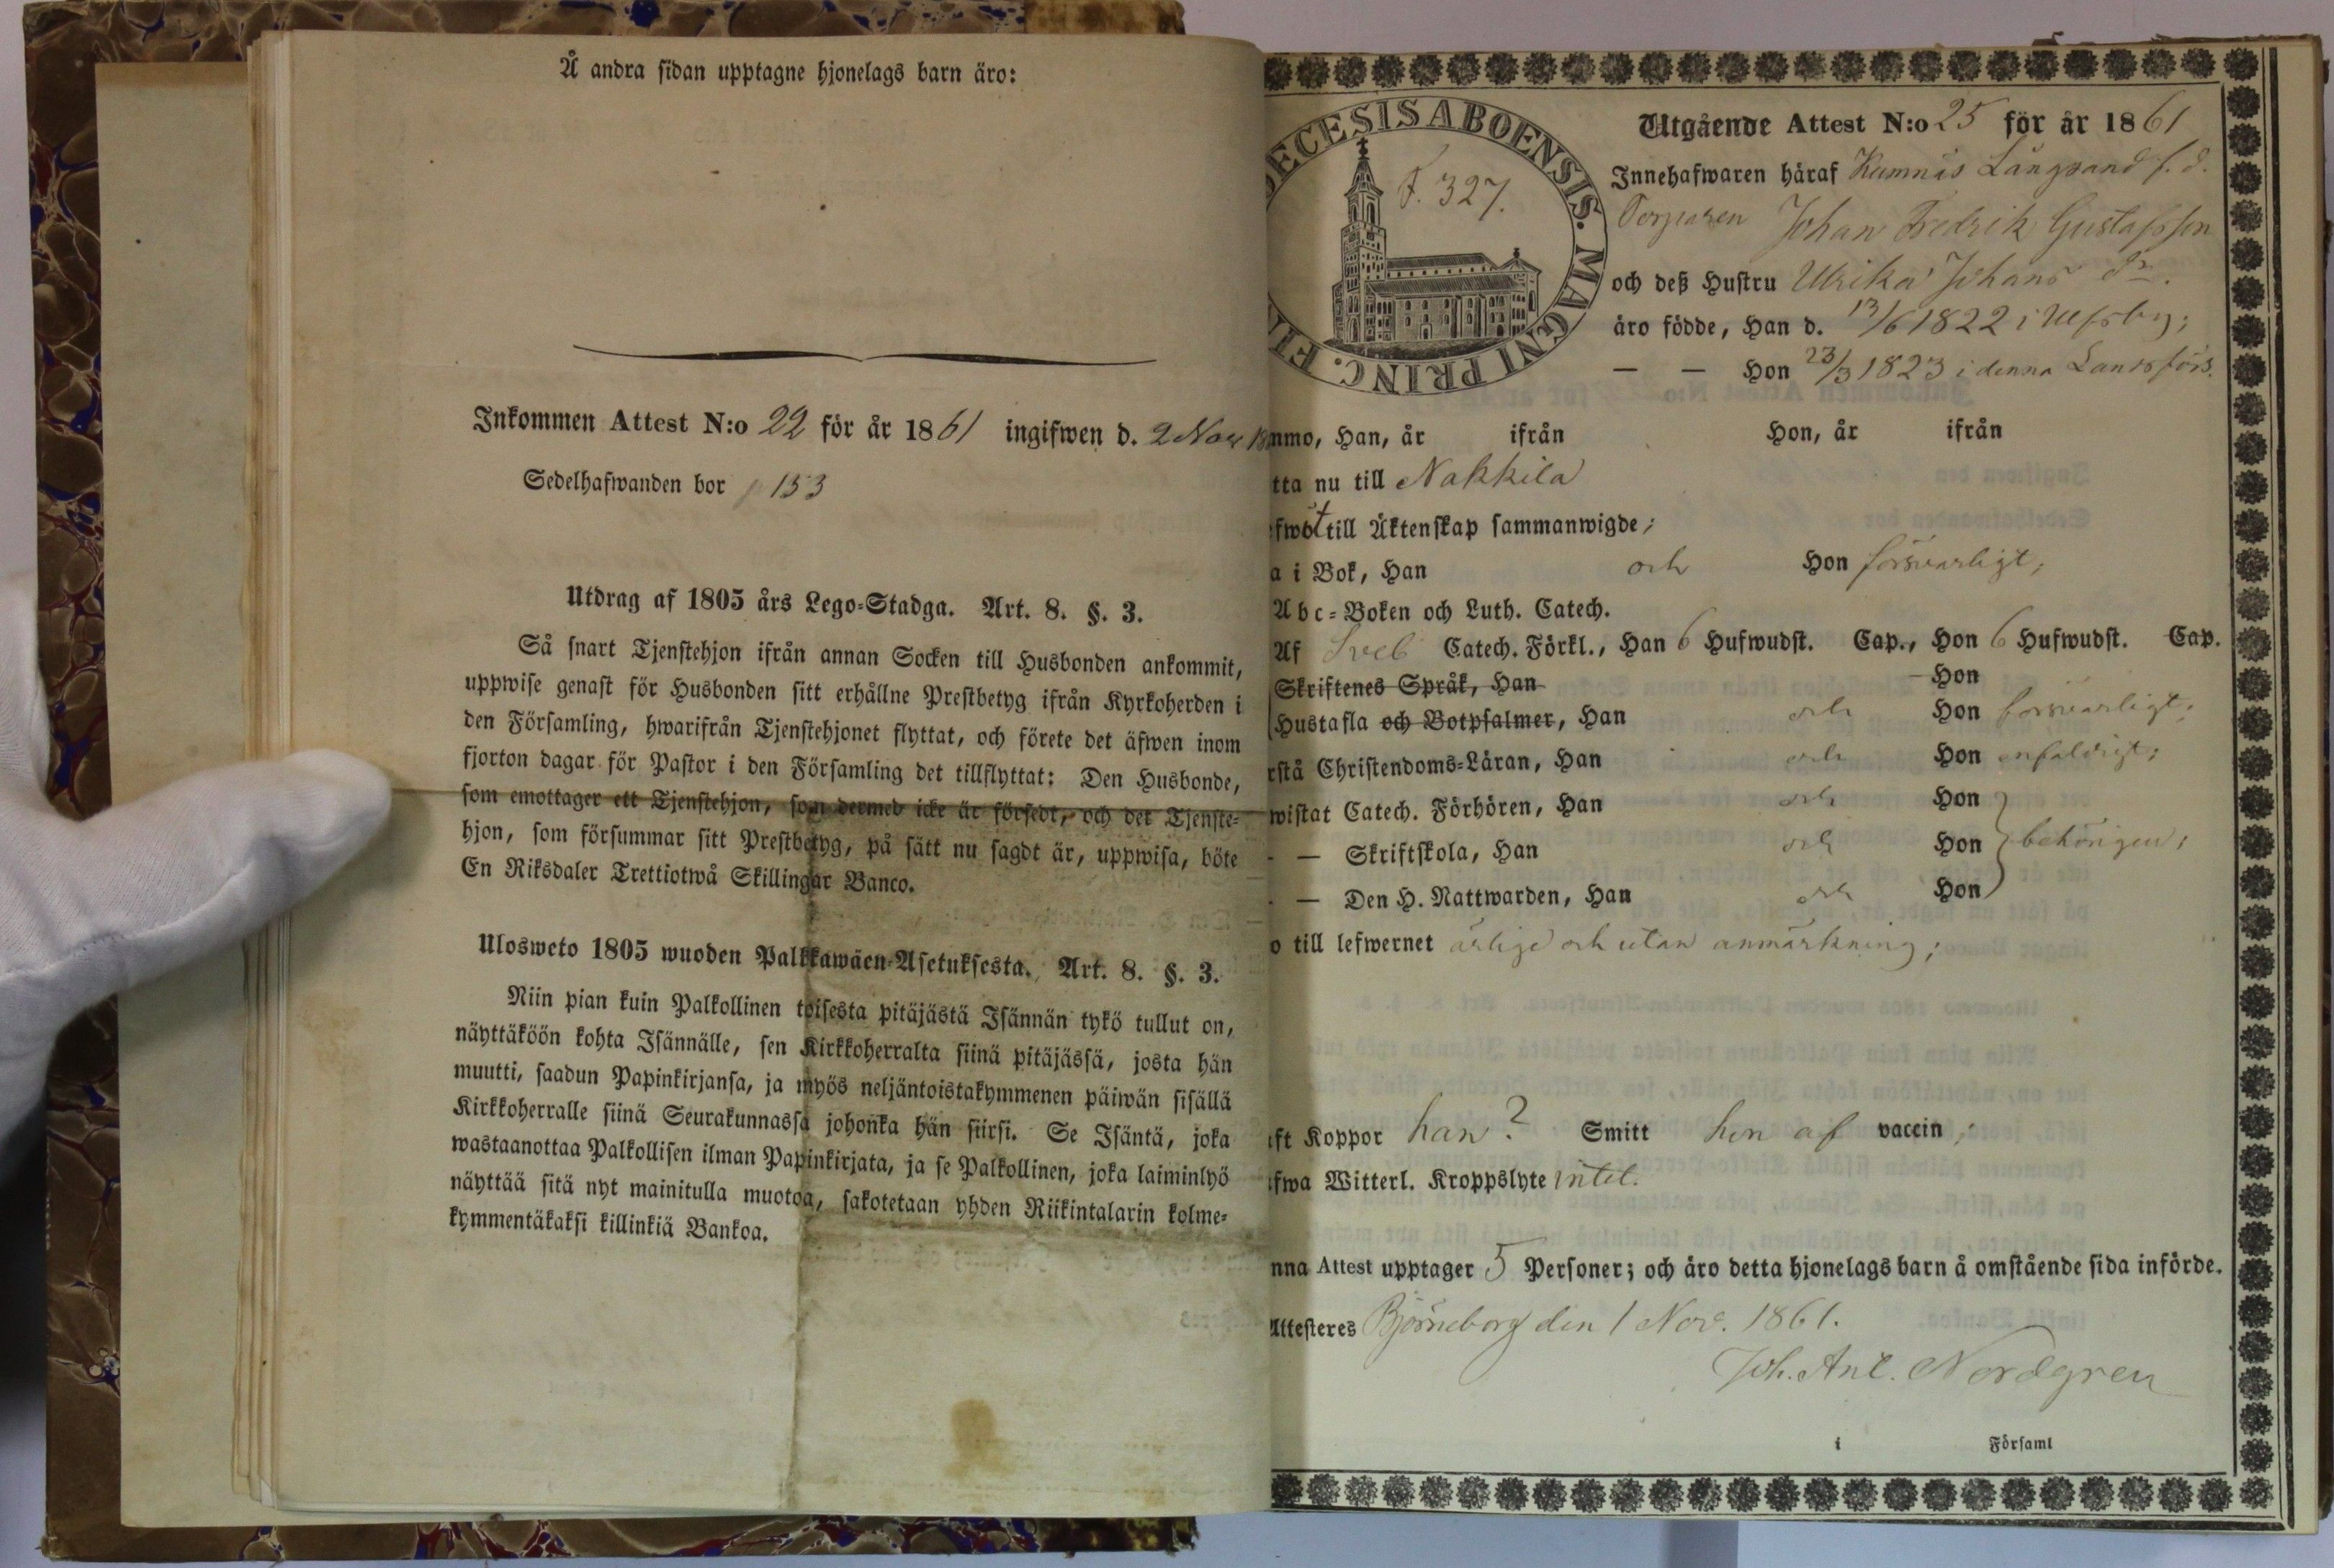 Å andra sidan upptagne hjonelags barn äro:
Inkommen Attest N:o 22 för år 1861 ingifwen d. 2 Nov 18
Sedelhafwanden bor p 153
Utdrag af 1805 års Lego-Stadga. Art. 8. §. 3.
Så snart Tjenstehjon ifrån annan Socken till Husbonden ankommit,
uppwise genast för Husbonden sitt erhållne Prestbetyg ifrån Kyrkoherden i
den Församling, hwarifrån Tjenstehjonet flyttat, och förete det äfwen inom
fjorton dagar för Pastor i den Församling det tillflyttat: Den Husbonde,
som emottager ett Tjenstehjon, som dermed icke är försedt, och det Tjenste-
hjon, som försummar sitt Prestbetyg, på sätt nu sagdt är, uppwisa, böte
En Riksdaler Trettiotwå Skillingar Banco.
Ulosweto 1805 wuoden Palkkawäen-Asetuksesta. Art. 8. §. 3.
Niin pian kuin Palkollinen toisesta pitäjästä Isännän tykö tullut on,
näyttäköön kohta Isännälle, sen Kirkkoherralta siinä pitäjässä, josta hän
muutti, saadun Papinkirjansa, ja myös neljäntoistakymmenen päiwän sisällä
Kirkkoherralle siinä Seurakunnassa johonka hän siirsi. Se Isäntä, joka
wastaanottaa Palkollisen ilman Papinkirjata, ja se Palkollinen, joka laiminlyö
näyttää sitä nyt mainitulla muotoa, sakotetaan yhden Riikintalarin kolme-
kymmentäkaksi killinkiä Bankoa.
ECESIS ABOENSIS. MAGNI PRINC. FI
F. 327.
Utgående Attest N:o 25 för år 1861
Innehafwaren häraf Kumnäs Långsand f. d.
Torparen Johan Fredrik Gustafsson
och deß Hustru Ulrika Johans dr.
äro födde, Han d. 13/6 1822 i Ulfsby;
— — Hon 23/3 1823 i denna Landsförs.
mmo, Han, år ifrån Hon, år ifrån
tta nu till Nakkila
efwot till Äktenskap sammanwigde;
a i Bok, Han och Hon försvarligt;
Abc-Boken och Luth. Catech.
Af Sveb Catech. Förkl., Han 6 Hufwudst. Cap., Hon 6 Hufwudst. Cap.
Skriftenes Språk, Han — Hon
Hustafla och Botpsalmer, Han och Hon försvarligt;
rstå Christendoms-Läran, Han och Hon enfaldigt;
wistat Catech. Förhören, Han och Hon
- — Skriftskola, Han och Hon behörigen;
- — Den H. Nattwarden, Han och Hon
o till lefwernet ärlige och utan anmärkning;
ft Koppor han? Smitt hon af vaccin;
fwa Witterl. Kroppslyte intet.
nna Attest upptager 5 Personer; och äro detta hjonelags barn å omstående sida införde.
Attesteres Björneborg den 1 Nov. 1861.
Joh. Ant. Nordgren
i Församl